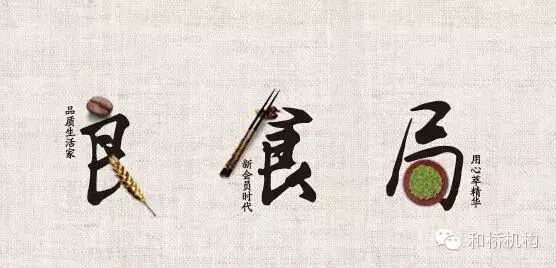 良食局
品质生活家
新会员时代
用心萃精华
和桥机构